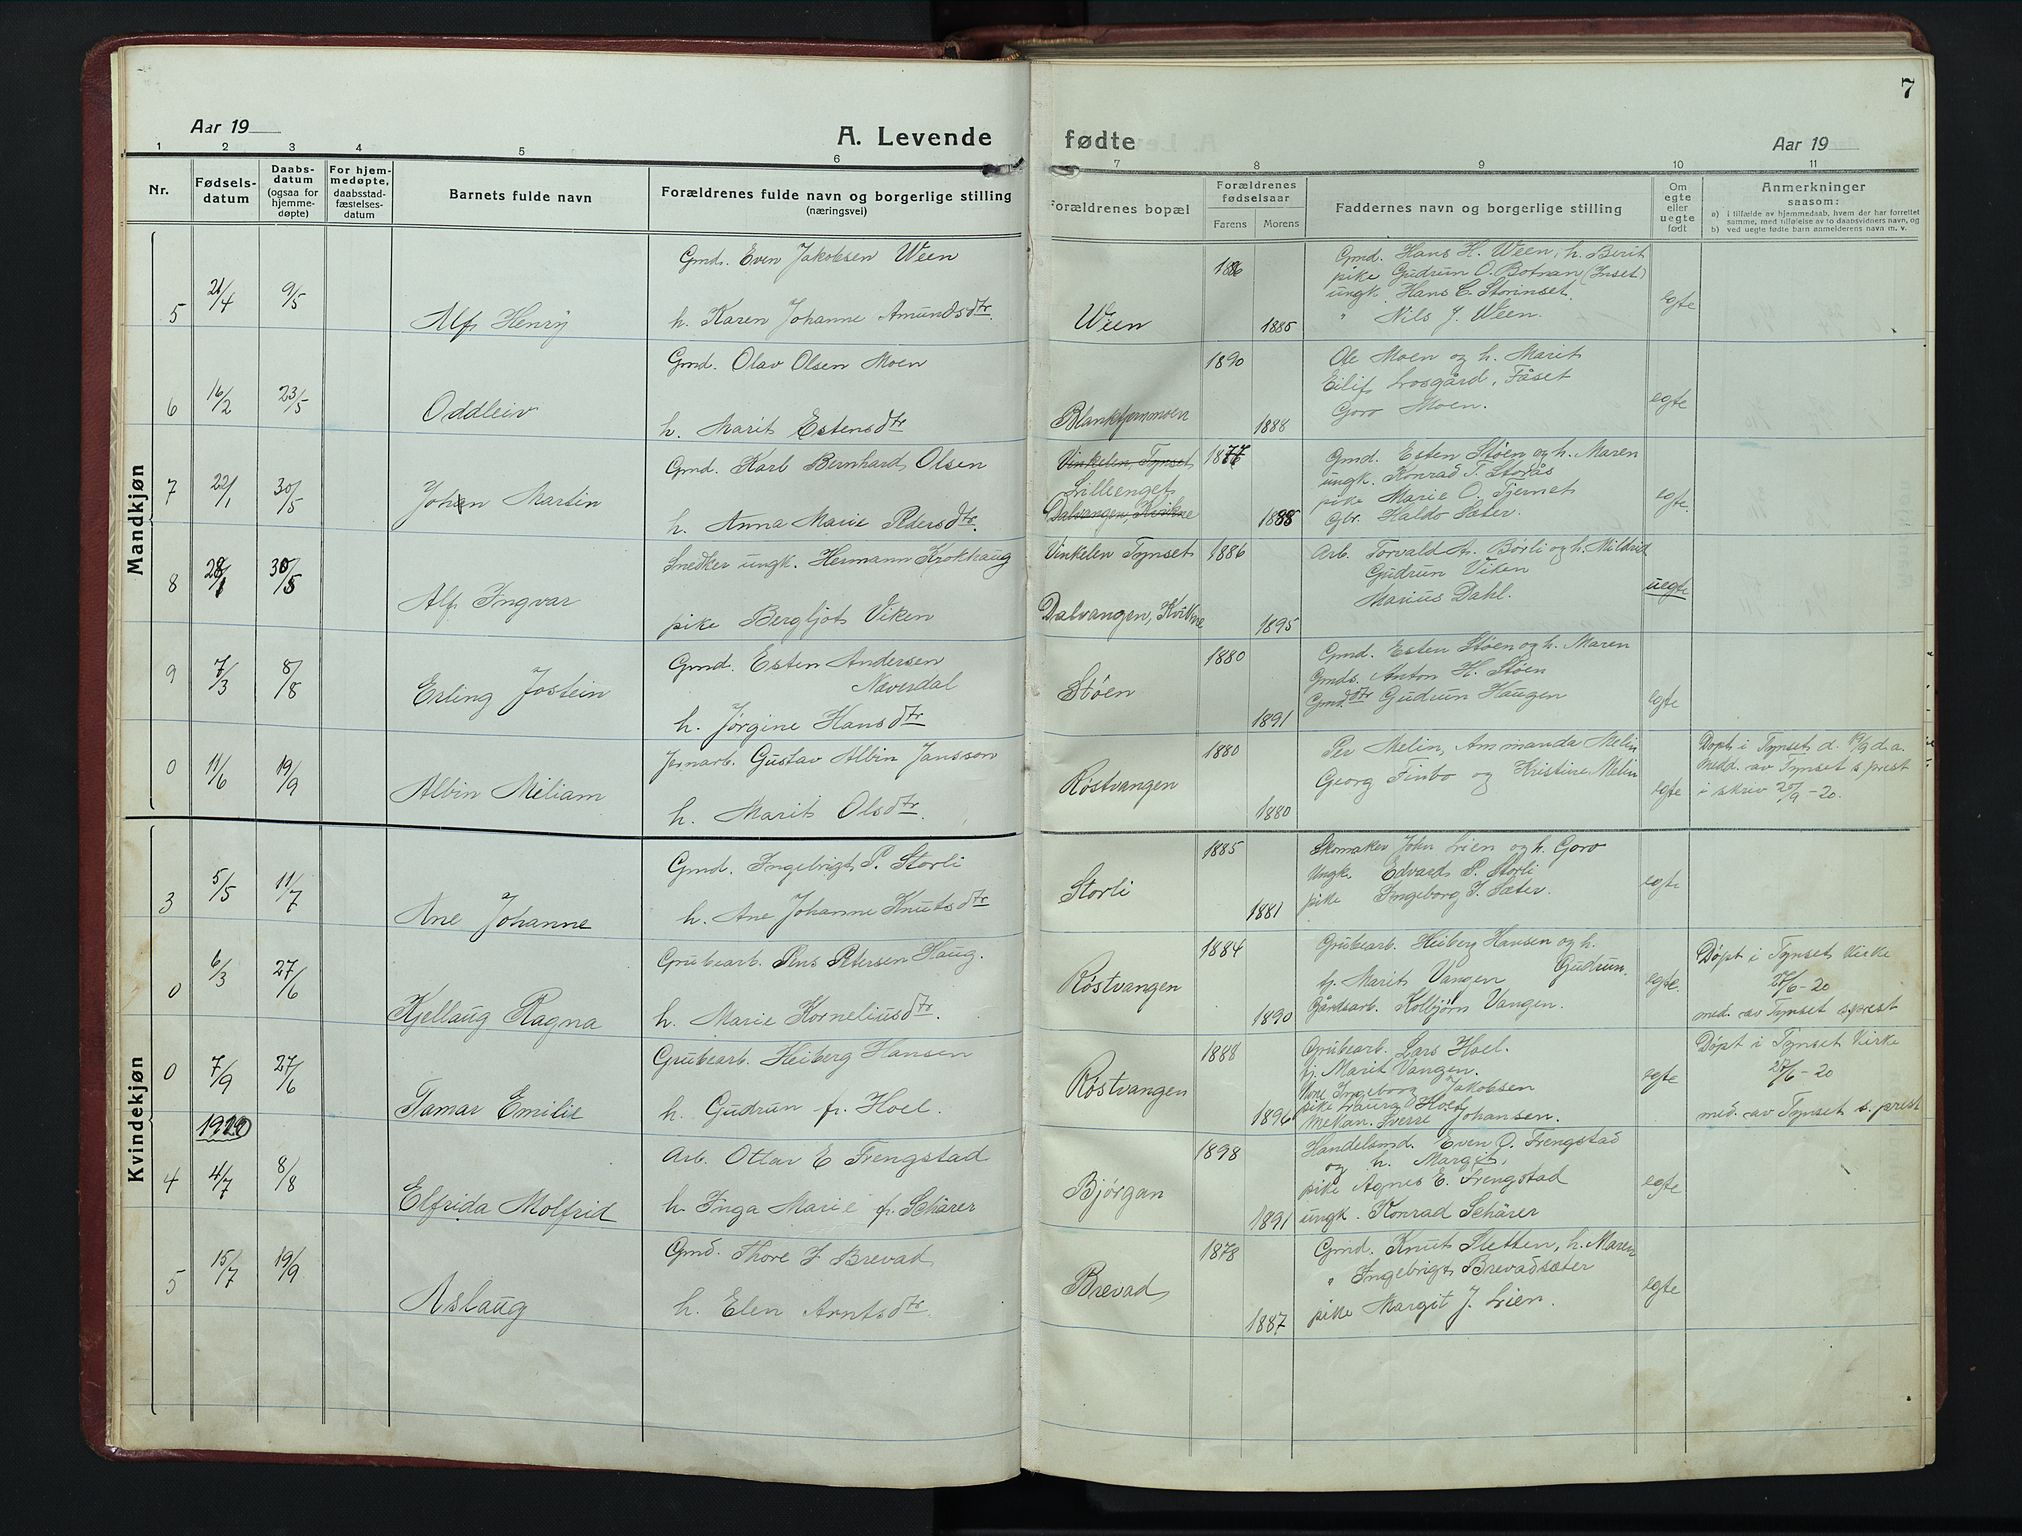 7
Aar 19
A. Levende
fødte
Aar 19
1 2 3 4 5 6 7 8 9 10 11
Nr.
Fødsels-
datum
Daabs-
datum
(ogsaa for
hjemme-
døpte)
For hjem-
medøpte,
daabsstad-
fæstelses-
datum
Barnets fulde navn
Forældrenes fulde navn og borgerlige stilling
(næringsvei)
Forældrenes bopæl
Forældrenes
fødselsaar
Farens
Morens
Faddernes navn og borgerlige stilling
Om
egte
eller
uegte
født
Anmerkninger
saasom:
a) i tilfælde av hjemmedaab, hvem der har forrettet
samme, med tilføielse av to daabsvidners navn, og
b) ved uegte fødte barn anmelderens navn m. v.
Mandkjøn
5 21/4 9/5 Alf Henry
Gmd. Even Jakobsen Ween
h. Karen Johanne Amundsdtr.
Ween
1886
1885
Gmd. Hans H. Ween, h. Berit
pike Gudrun O. Botnan (Inset)
ungk. Hans C. Storinset.
" Nils J. Ween.
egte
6 16/2 23/5 Oddleiv
Gmd. Olav Olsen Moen
h. Marit Estensdtr
Blanktjernmoen
1890
1888
Ole Moen og h. Marit
Eilif Losgård, Fåset
Goro Moen.
egte
7 22/1 30/5 Johan Martin
Gmd. Karl Bernhard Olsen
h. Anna Marie Pedersdtr.
Vinkelen, Tynset
Lilleenget
Dalvangen, Kvikne
1877
1888
Gmd. Esten Støen og h. Maren
ungk. Konrad T. Storås
pike Marie O. Tjernet
Gbr. Haldo Sæter.
egte.
8 28/1 30/5 Alf Ingvar
Snedker ungk. Hermann Krokhaug
pike Bergljot Viken
Vinkelen Tynset
Dalvangen, Kvikne
1886
1895
Arb. Torvald A. Børli og h. Mildrid
Gudrun Viken
Marius Dahl.
uegte
9 7/3 8/8 Erling Jostein
Gmd. Esten Andersen
Næverdal
h. Jørgine Hansdtr
Støen
1880
1891
Gmd. Esten Støen og h. Maren
Gmds. Anton H. Støen
Gmd.dtr Gudrun Haugen
egte
0 11/6 19/9 Albin Miliam
Jernarb. Gustav Albin Jansson
h. Marit Olsdtr.
Røstvangen
1880
1880
Per Melin, Ammanda Melin
Georg Finbo og Kristine Melin
egte
Døpt i Tynset d. 19/9 d.a.
Medd. av Tynset s. prest
i skriv 20/9 - 20.
Kvindekjøn
3 5/5 11/7 Ane Johanne
Gmd. Ingebrigt P. Storli
h. Ane Johanne Knutsdtr
Storli
1885
1881
Skomaker John Lien og h. Goro
Ungk. Edvard P. Storli
pike Ingeborg I. Sæter.
egte
0 6/3 27/6 Kjellaug Ragna
Grubearb. Petersen Haug.
h. Marie Korneliusdtr.
Røstvangen
1884
1890
Grubearb. Heiberg Hansen og h.
Gudrun.
fr. Marit Vangen
Gårdsarb. Kolbjørn Vangen.
egte.
Døpt i Tynset kirke
27/6 - 20
med. av Tynset s. prest
0 7/9 27/6 Tamar Emilie
1919
Grubearb. Heiberg Hansen
h. Gudrun f. Hoel.
Røstvangen
1888
1896
Grubearb. Lars Hoel.
fr. Marit Vangen.
Ingeborg Jakobsen
pike Laura Hoel
Mekan. Sverre Johansen.
egte
Døpt i Tynset kirke
27/6 - 20
med. av Tynset s. prest
4 4/7 8/8 Elfrida Molfrid
Arb. Ottar E Trengstad
h. Inga Marie f. Schärer
Bjørgan
1898
1891
Handelsmd. Even O. Trengstad
og h. Margit,
pike Agnes E. Trengstad
ungk. Konrad Schärer
egte
5 15/7 19/9 Aslaug
Gmd. Thore I Brevad
h. Elen Arntsdtr.
Brevad
1878
1887
Gmd. Knut Sletten, h. Maren
" Ingebrigt Brevadsæter
pike Margit J. Lien.
egte